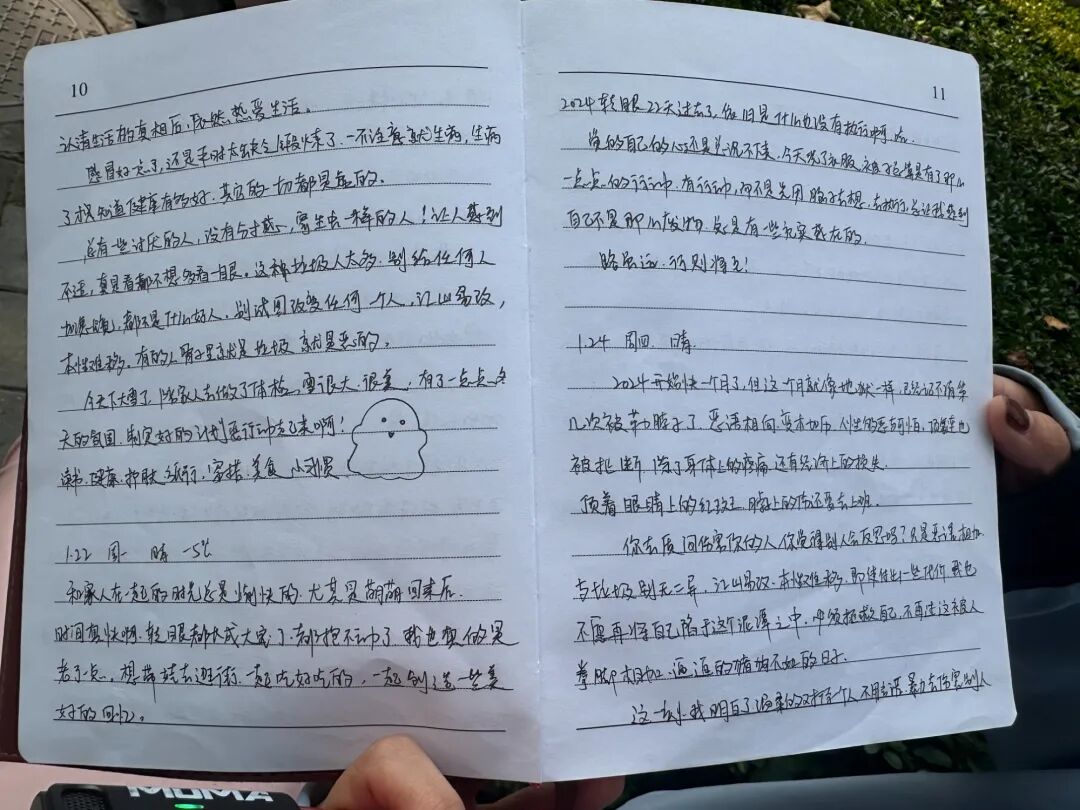 10
认清生活的真相后,依然热爱生活。
感冒好一点了,还是平时太缺乏锻炼了,一不注意就生病,生病
了才知道健康有多好,其它的一切都是虚的。
总有一些讨厌的人,没有分寸感,寄生虫一样的人!让人感到
不适,真是看都不想多看一眼。这种垃圾人太多,别给任何人
都不是什么好人,别试图改变任何一个人,江山易改,
本性难移。有的人骨子里就是垃圾 就是恶的。
今天下大雪了,陪家人去做了体检,雪很大,很美,有了一点点冬
天的氛围,制定好的计划要行动起来啊!
读书、健康、护肤、旅行、穿搭、美食 小习惯
1.22 周一 晴 -5℃
和家人在一起的时光总是愉快的,尤其是萌萌回来后,
时间想快啊,转眼都长成大宝了,都抱不动了,我也真的是
老了一点,想带娃去逛街,一起吃好吃的,一起创造一些美
好的回忆。
11
2024转眼22天过去了,依旧是什么也没有执行啊 哈
觉的自己的心还是总沉不下来,今天洗了衣服、被子总算是有了那么
一点点的行动,有行动,而不是光用脑子去想,去执行,总让我感到
自己不是那么废物,总是有一些充实感在的。
路虽远,行则将至!
1.24 周四 晴
2024开始快一个月了,但这个月就像地狱一样,已经记不清第
几次被勒脖子了,恶语相向,变本加厉,人性的恶有可怕,
被扯断,除了身体上的疼痛,还有经济上的损失
顶着眼睛上的红,脖子上的伤还要去上班。
你去质问伤害你的人,你觉得别人会反思吗?只是恶语相加
与垃圾别无二异,江山易改,本性难移,即使付出一些代价,我也
不愿再将自己陷于这个泥潭之中,必须拯救自己,不再过这被人
拳脚相加、逼逼的猪狗不如的日子。
这一刻,我明白了温柔的对待个人,不用言语、暴力去伤害别人